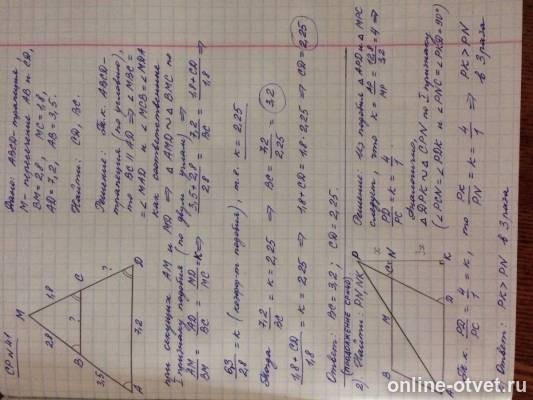 СР №41
M
1,8
C
?
D
2,8
B
?
3,5
A
7,2
Дано: ABCD-трапеция
M - пересечение AB и CD,
BM = 2,8, MC = 1,8,
AD = 7,2, AB = 3,5.
Найти: CD, BC.
Решение: Т.к. ABCD-
трапеция (по условию),
то BC ∥ AD ⇒ ∠MBC =
= ∠MAD и ∠MCB = ∠MDA
как соответственные
при секущих AM и MD ⇒ △AMD ~ △BMC по
I признаку подобия (по двум углам) ⇒
AM/BM = AD/BC = MD/MC = k ⇒ (3,5+2,8)/2,8 = 7,2/BC = (1,8+CD)/1,8 ⇒
6,3/2,8 = k (коэфф-т подобия), т.е. k = 2,25
Тогда 7,2/BC = k = 2,25 ⇒ BC = 7,2/2,25 = 3,2
(1,8+CD)/1,8 = k = 2,25 ⇒ 1,8+CD = 1,8·2,25 ⇒ CD = 2,25
Ответ: BC = 3,2; CD = 2,25.
2) Найти: PN, NK
P
x
N
3x
K
M
D
Решение: Из подобия △APD и △MPC
следует, что k = AD/MP = 12,8/3,2 = 4 ⇒
PD/PC = k = 4/1. Аналогично,
△DPK ~ △CPN по I признаку
(∠PCN = ∠PDK и ∠PNC = ∠PKD = 90°)
Т.к. PD/PC = 4/1 = k, то PK/PN = k = 4/1 ⇒ PK > PN
в 3 раза
Ответ: PK > PN в 3 раза
online-otvet.ru